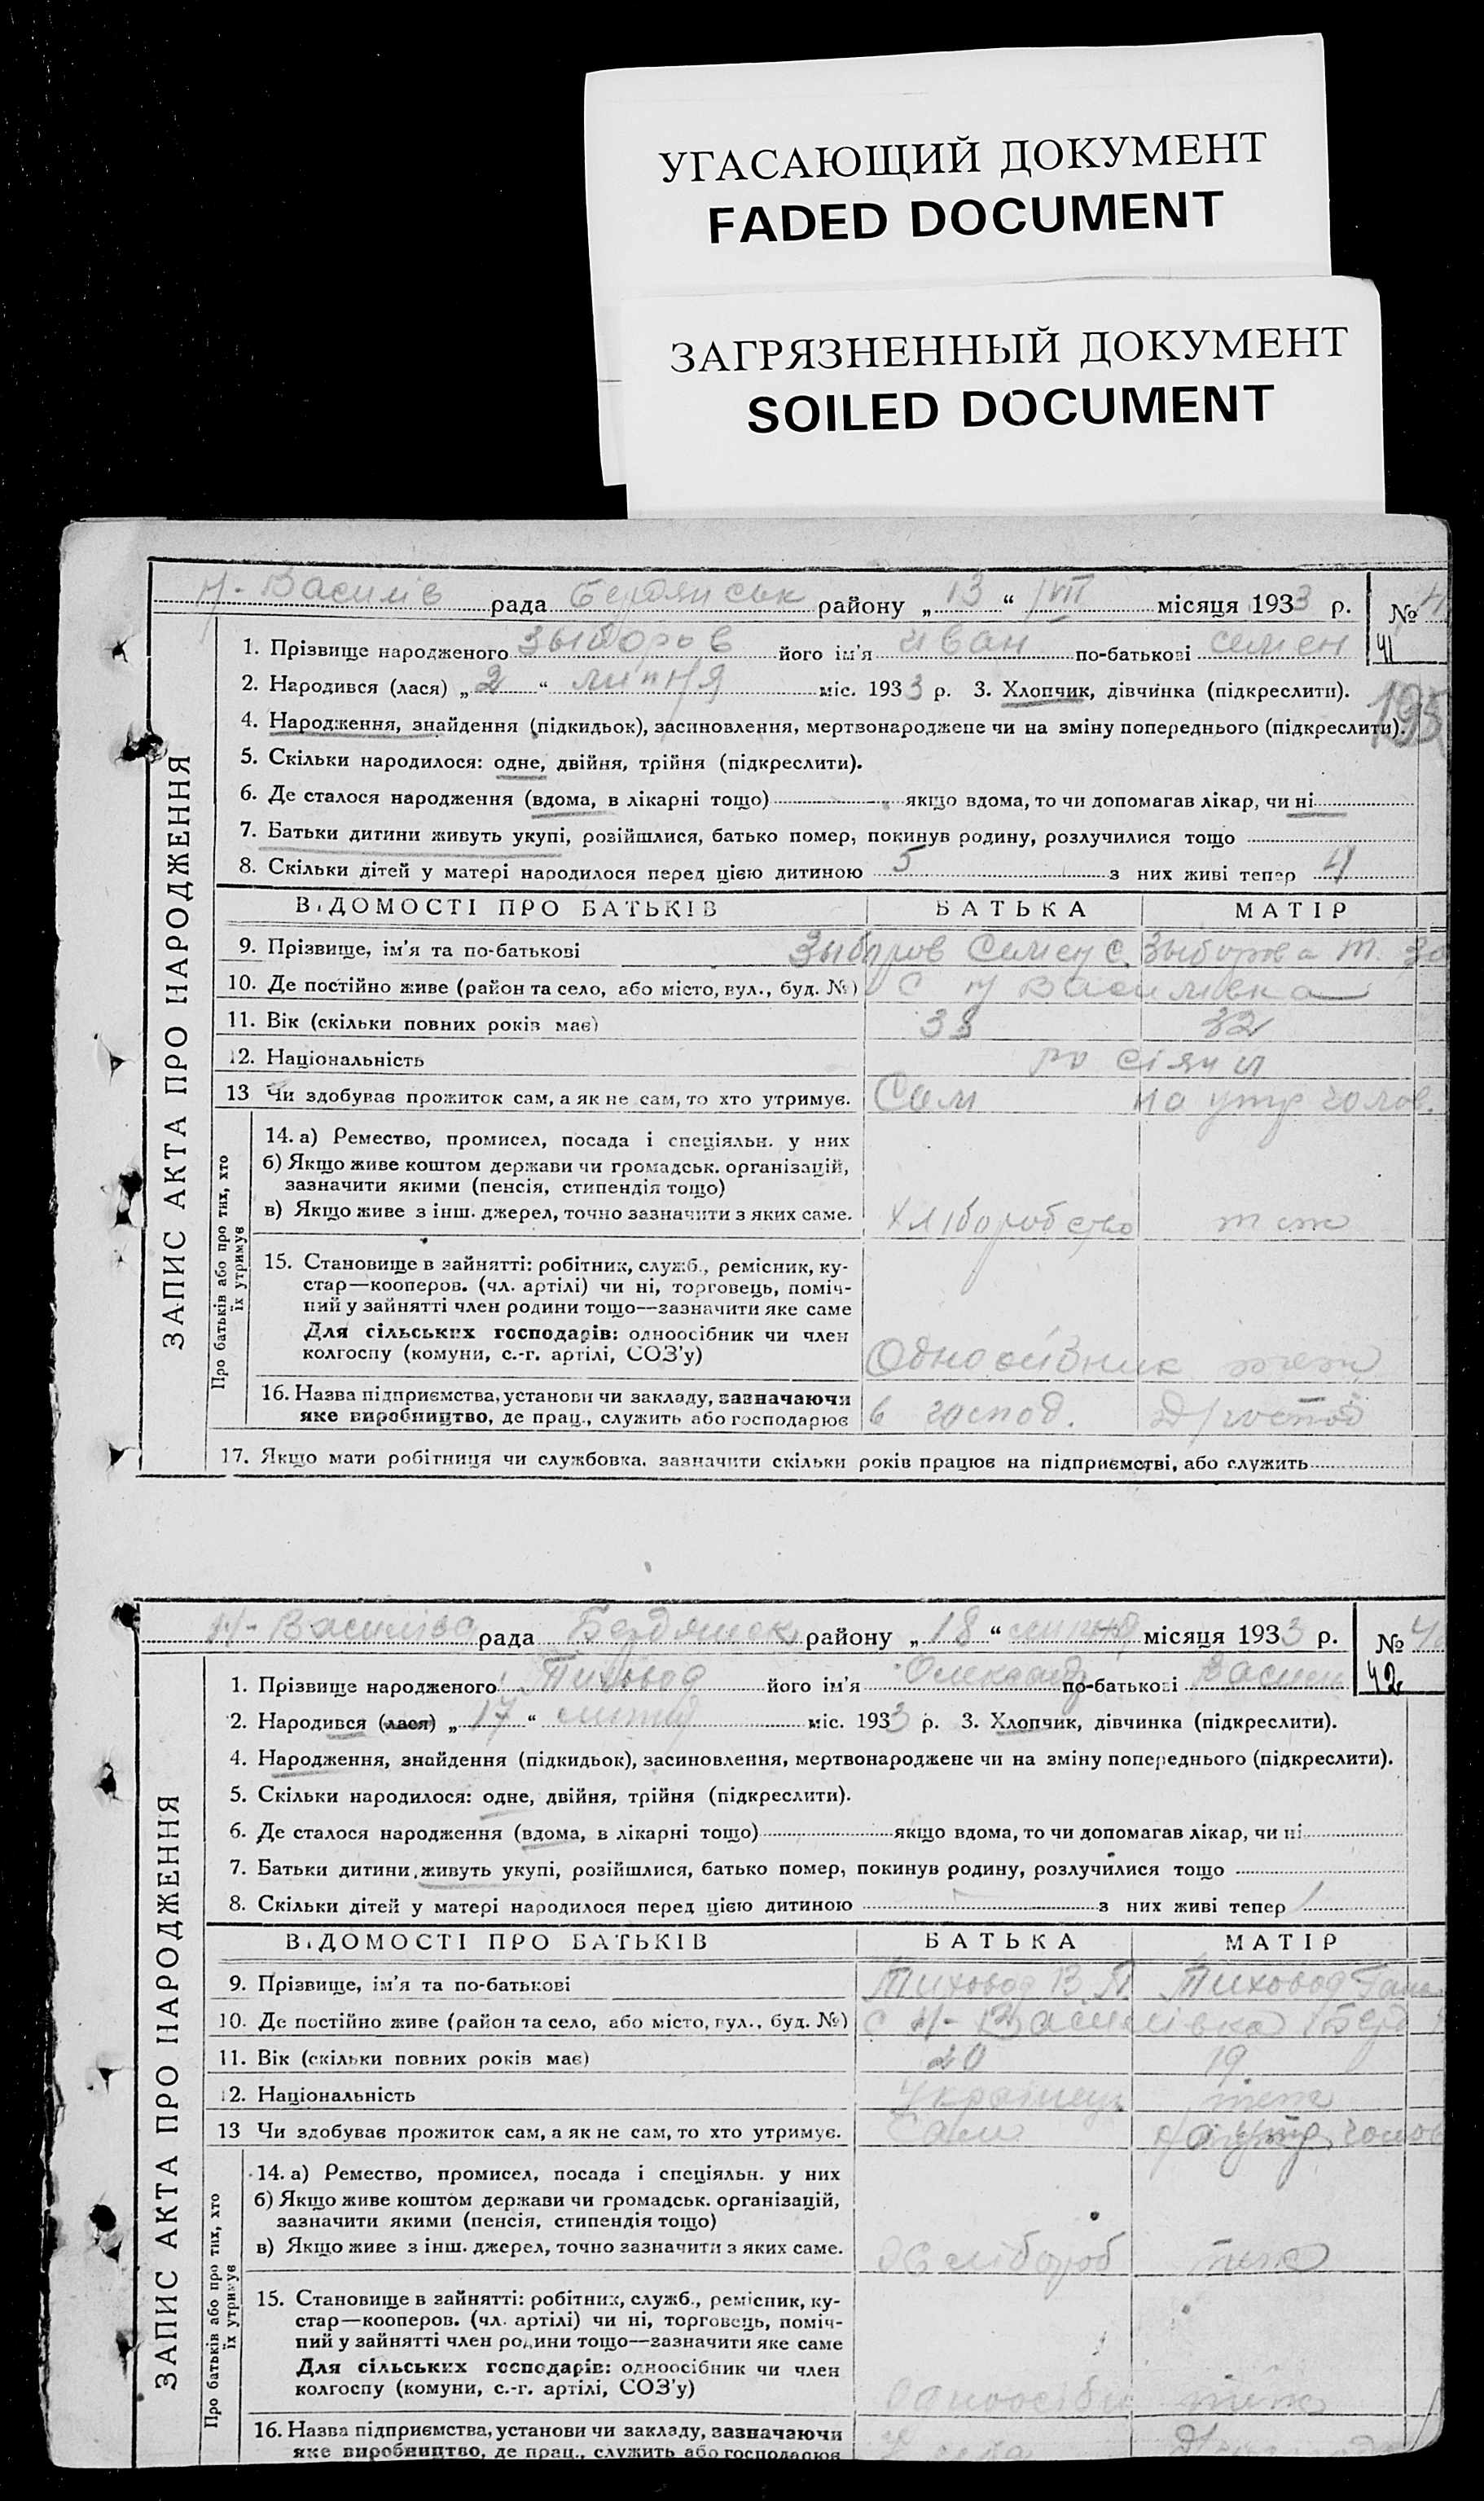 УГАСАЮЩИЙ ДОКУМЕНТ
FADED DOCUMENT
ЗАГРЯЗНЕННЫЙ ДОКУМЕНТ
SOILED DOCUMENT
Н-Василів рада Бердянськ району „13“ VII місяця 1933 р. №
41
ЗАПИС АКТА ПРО НАРОДЖЕННЯ
1. Прізвище народженого Зыборов його ім'я Иван по-батькові Семен
2. Народився (лася) „2“ липня міс. 1933 р. 3. Хлопчик, дівчинка (підкреслити).
195
4. Народження, знайдення (підкидьок), засиновлення, мертвонароджене чи на зміну попереднього (підкреслити).
5. Скільки народилося: одне, двійня, трійня (підкреслити).
6. Де сталося народження (вдома, в лікарні тощо) якщо вдома, то чи допомагав лікар, чи ні
7. Батьки дитини живуть укупі, розійшлися, батько помер, покинув родину, розлучилися тощо
8. Скільки дітей у матері народилося перед цією дитиною 5 з них живі тепер 4
ВІДОМОСТІ ПРО БАТЬКІВ БАТЬКА МАТІР
9. Прізвище, ім'я та по-батькові Зыборов Семен С. Зыборова Т.
10. Де постійно живе (район та село, або місто, вул., буд. №) С Н Василивка
11. Вік (скільки повних років має) 33 32
12. Національність росіяни
13 Чи здобував прожиток сам, а як не сам, то хто утримує. Сам на утр чолов.
Про батьків або про тих, хто їх утримує
14. а) Ремество, промисел, посада і спеціяльн. у них
б) Якщо живе коштом держави чи громадськ. організацій,
зазначити якими (пенсія, стипендія тощо)
в) Якщо живе з інш. джерел, точно зазначити з яких саме. Хліборобство теж
15. Становище в зайнятті: робітник, служб., ремісник, ку-
стар—кооперов. (чл. артілі) чи ні, торговець, поміч-
ний у зайнятті член родини тощо—зазначити яке саме
Для сільських господарів: одноосібник чи член
колгоспу (комуни, с.-г. артілі, СОЗ'у) Одноосібник теж
16. Назва підприємства, установи чи закладу, зазначаючи
яке виробництво, де прац., служить або господарює в господ. Д/господ
17. Якщо мати робітниця чи службовка, зазначити скільки років працює на підприємстві, або служить
Н-Василівс рада Бердянськ району „18“ липня місяця 1933 р. №
42
ЗАПИС АКТА ПРО НАРОДЖЕННЯ
1. Прізвище народженого Тиховод його ім'я Олександ по-батькові Васил
2. Народився (лася) „17“ липня міс. 1933 р. 3. Хлопчик, дівчинка (підкреслити).
4. Народження, знайдення (підкидьок), засиновлення, мертвонароджене чи на зміну попереднього (підкреслити).
5. Скільки народилося: одне, двійня, трійня (підкреслити).
6. Де сталося народження (вдома, в лікарні тощо) якщо вдома, то чи допомагав лікар, чи ні
7. Батьки дитини живуть укупі, розійшлися, батько помер, покинув родину, розлучилися тощо
8. Скільки дітей у матері народилося перед цією дитиною з них живі тепер
ВІДОМОСТІ ПРО БАТЬКІВ БАТЬКА МАТІР
9. Прізвище, ім'я та по-батькові Тиховод В. П Тиховод Ганн
10. Де постійно живе (район та село, або місто, вул., буд. №) с Н-Василівка Берд
11. Вік (скільки повних років має) 20 19
12. Національність Українець теж
13 Чи здобував прожиток сам, а як не сам, то хто утримує. Сам на утр. чолов
Про батьків або про тих, хто їх утримує
14. а) Ремество, промисел, посада і спеціяльн. у них
б) Якщо живе коштом держави чи громадськ. організацій,
зазначити якими (пенсія, стипендія тощо)
в) Якщо живе з інш. джерел, точно зазначити з яких саме. Хлібороб теж
15. Становище в зайнятті: робітник, служб., ремісник, ку-
стар—кооперов. (чл. артілі) чи ні, торговець, поміч-
ний у зайнятті член родини тощо—зазначити яке саме
Для сільських господарів: одноосібник чи член
колгоспу (комуни, с.-г. артілі, СОЗ'у) Одноосібн теж
16. Назва підприємства, установи чи закладу, зазначаючи
яке виробництво, де прац., служить або господарює